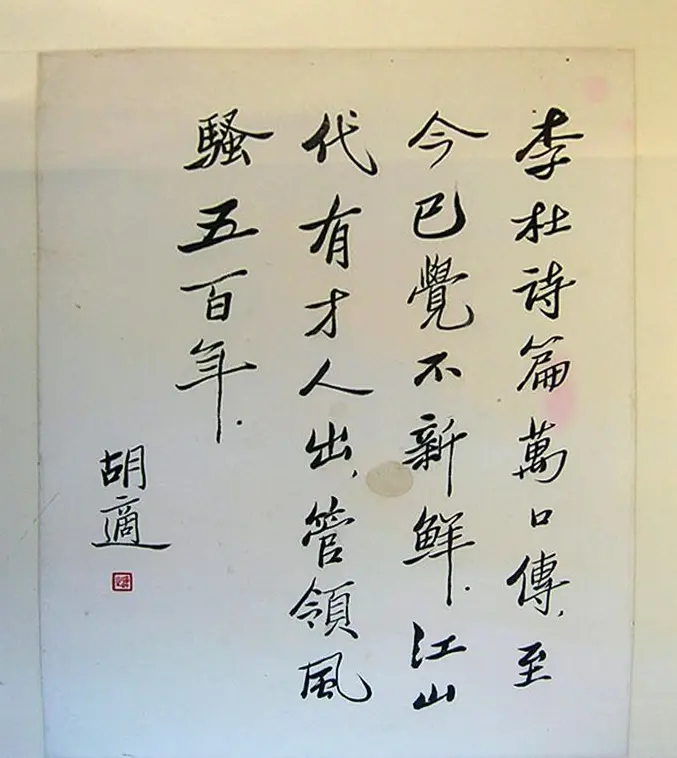 李杜詩篇萬口傳,至
今已覺不新鮮.江山
代有才人出,管領風
騷五百年.
胡適